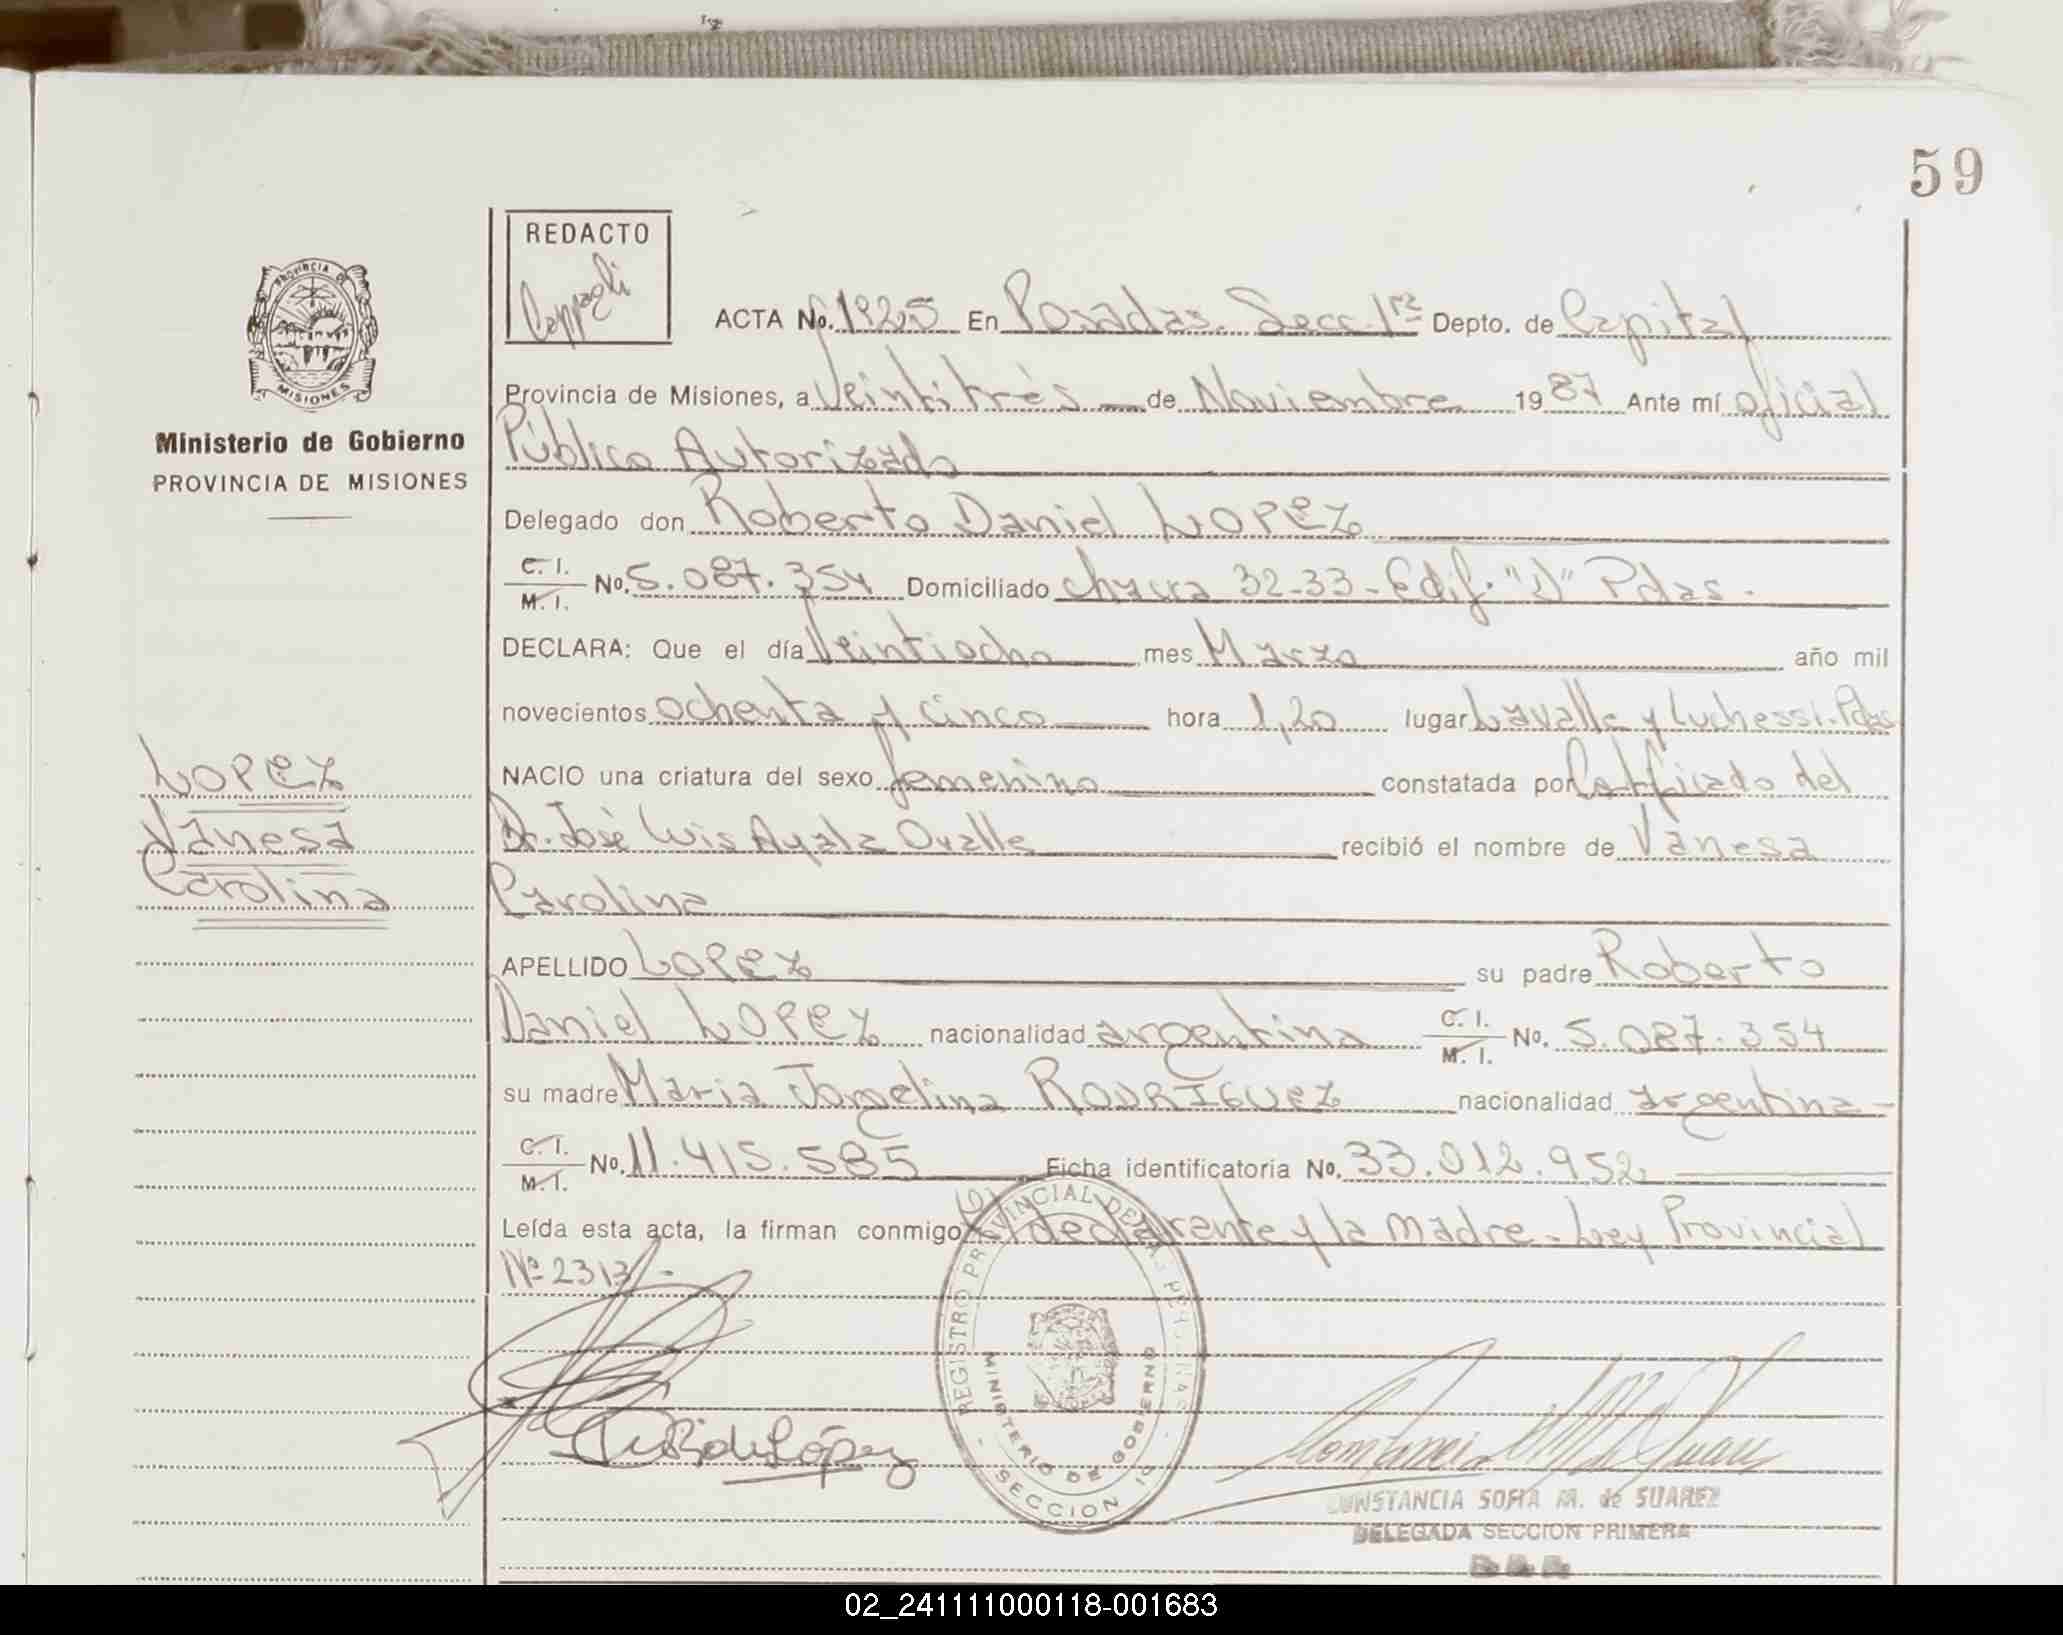 59
REDACTO
ACTA No. 1925 En Posadas. Secc. 1ra Depto. de Capital
Provincia de Misiones, a Veintitrés de Noviembre 1987 Ante mí oficial
Público Autorizado
PROVINCIA DE
MISIONES
Ministerio de Gobierno
PROVINCIA DE MISIONES
Delegado don Roberto Daniel LOPEZ
C. I.
M. I. No. 5.087.354 Domiciliado chacra 32-33-Edif. Pdas.
DECLARA: Que el día Veintiocho mes Marzo año mil
novecientos ochenta y cinco hora 1,20 lugar Lavalle y Luchessi-Pdas
LOPEZ
Vanesa
Carolina
NACIO una criatura del sexo femenino constatada por Certificado del
Dr. José Luis Ayala Ovalle recibió el nombre de Vanesa
Carolina
APELLIDO LOPEZ su padre Roberto
Daniel LOPEZ nacionalidad argentina C. I. M. I. No. 5.087.354
su madre Maria Jorgelina RODRIGUEZ nacionalidad argentina-
C. I.
M. I. No. 11.415.585 Ficha identificatoria No. 33.012.952
Leída esta acta, la firman conmigo el declarente y la madre-Ley Provincial
Nº 2313-
REGISTRO PROVINCIAL DE LAS PERSONAS
MINISTERIO DE GOBIERNO
SECCION 1a
R de López
CONSTANCIA SOFIA M. de SUAREZ
DELEGADA SECCION PRIMERA
02_241111000118-001683